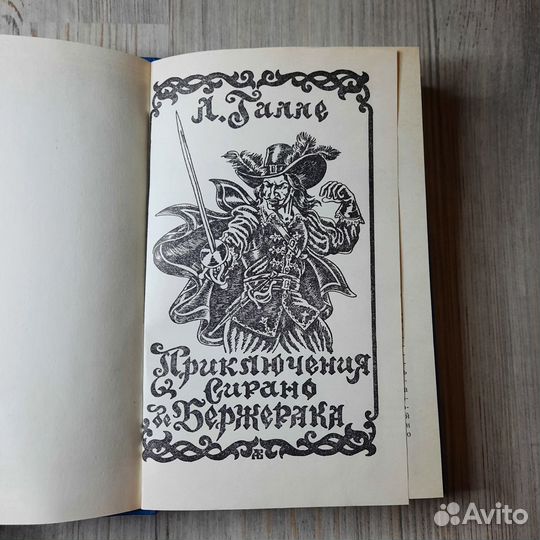 Л. Галле
Приключения
Сирано
де Бержерака
Avito